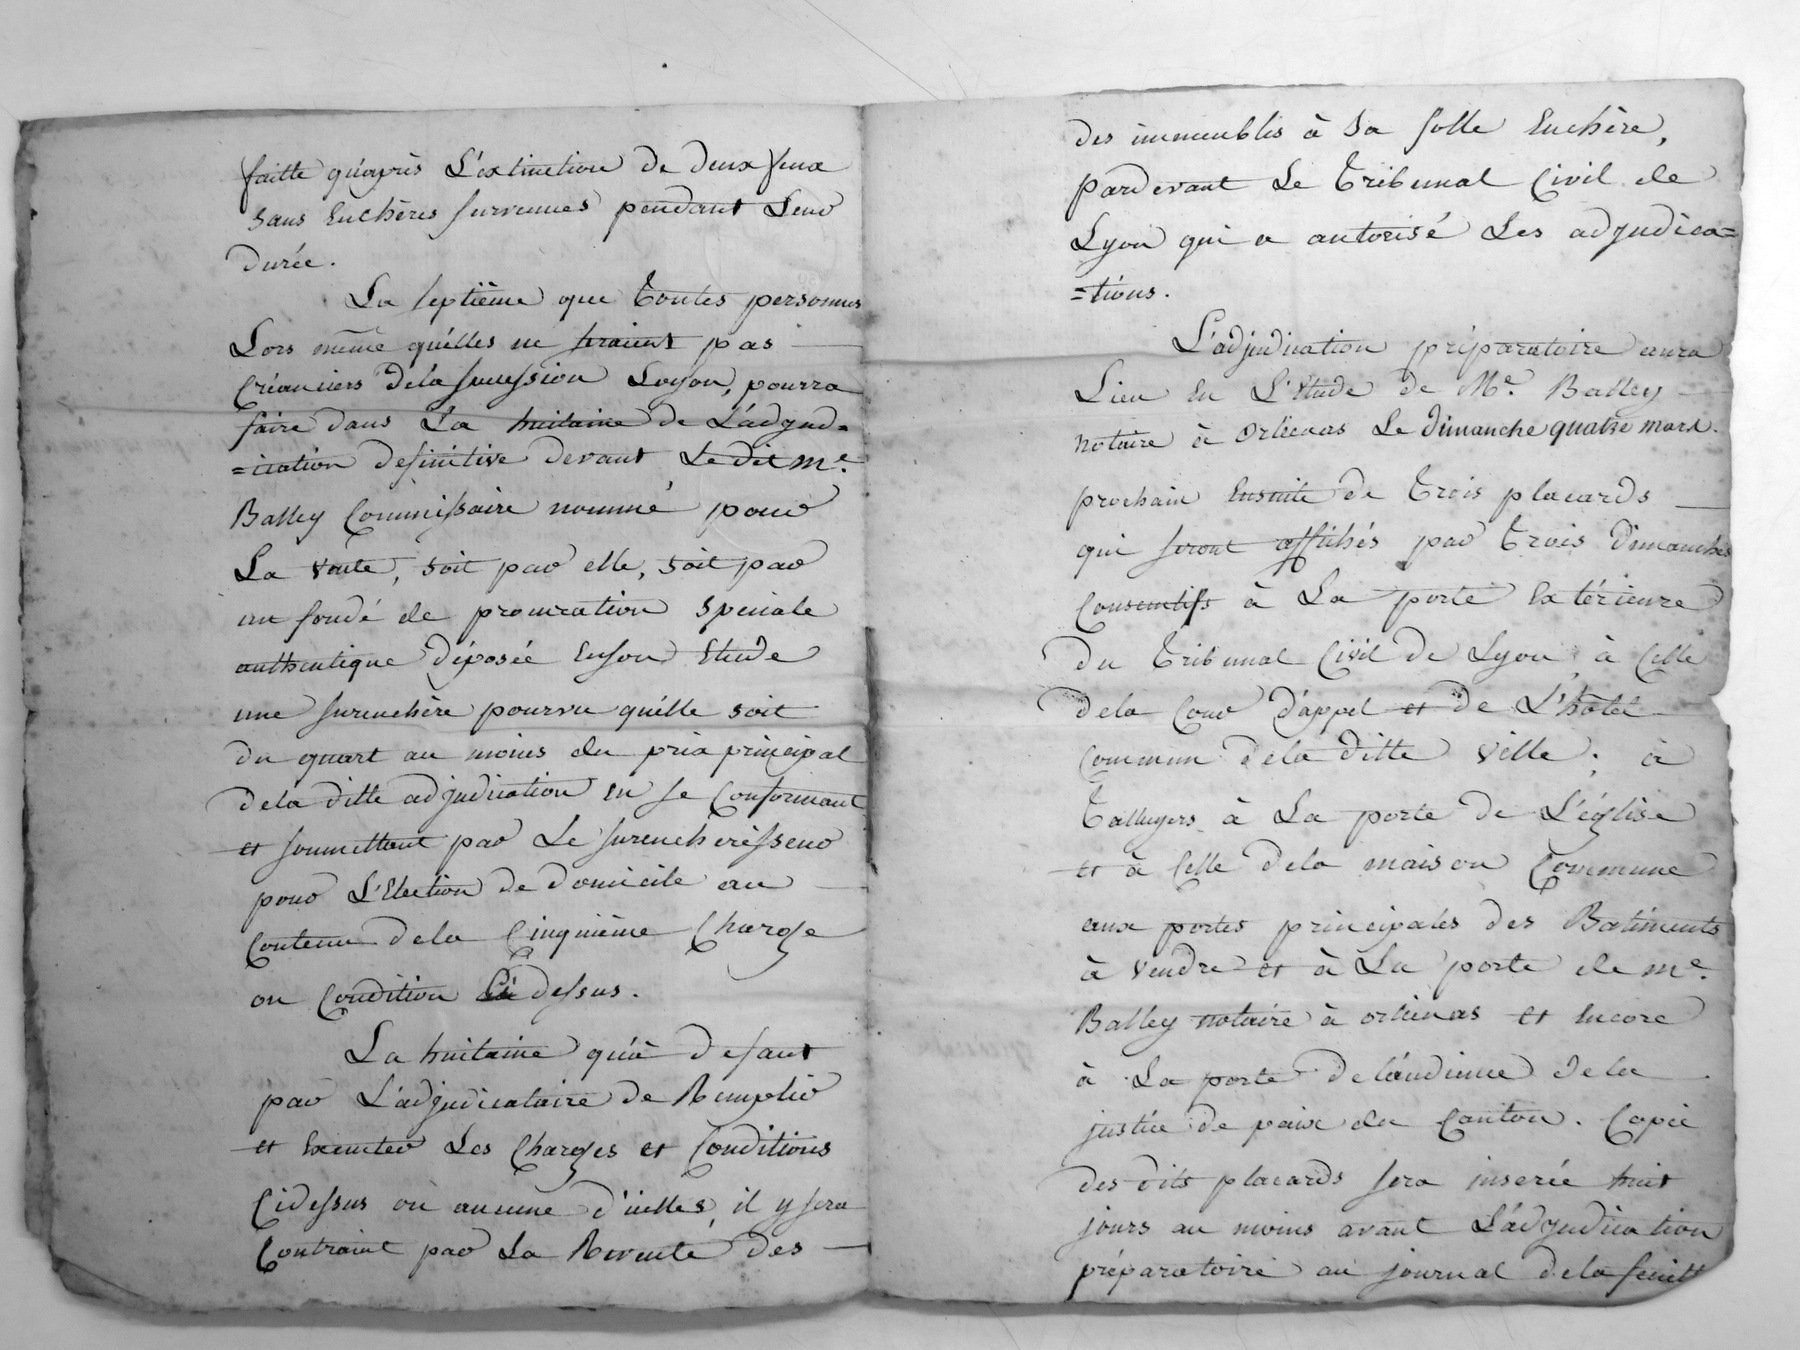 faitte qu'après L'extinction de deux feux
sans Enchères survenues pendant Leur
durée.
La septième que Toutes personnes
Lors même qu'elles ne seraient pas
Créanciers dela succession Loyon, pourra
faire dans La huitaine de L'adjud=
=ication definitive devant Le dit me.
Balley Commissaire nommé pour
La vente, soit par elle, soit par
un fondé de procuration spéciale
authentique déposée enson Etude
une surenchère pourvu qu'elle soit
du quart au moins du prix principal
dela ditte adjudication en se Conformant
et soumettant par Le surenchérisseur
pour L'Election de domicile au
Contenu dela Cinquième Charge
ou Condition Ci dessus.
La huitaine qu'à defaut
par L'adjudicataire de Remplir
et Executer Les Charges et Conditions
Cidessus ou aucune d'icelles, il y sera
Contraint par La Revente des
des immeubles à sa folle Enchère,
pardevant Le Tribunal Civil de
Lyon qui a autorisé Les adjudica=
=tions.
L'adjudication préparatoire aura
Lieu en L'Etude de Me. Balley
notaire à Orliénas Le dimanche quatre mars
prochain Ensuite de Trois placards
qui seront affichés par Trois dimanches
Consecutifs à La porte Extérieure
du Tribunal Civil de Lyon à Celle
dela Cour d'appel et de L'hôtel
Commun dela ditte ville; à
Talluyers à La porte de L'église
et à Celle dela maison Commune
aux portes principales des Batiments
à vendre et à La porte de me.
Balley notaire à orliénas et Encore
à La porte de l'audience dela
justice de paix du Canton. Copie
des dits placards sera inserée huit
jours au moins avant L'adjudication
préparatoire au journal dela feuille